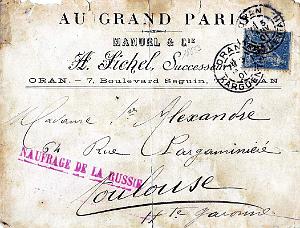 AU GRAND PARIS
MANUEL & Cie
A. Fichel, Successeur
ORAN. — 7, Boulevard Seguin, — ORAN
ORAN
KARGUENTAH
Madame Ste Alexandre
64 Rue Pargaminière
NAUFRAGE DE LA RUSSIE
Toulouse
Hte Garonne